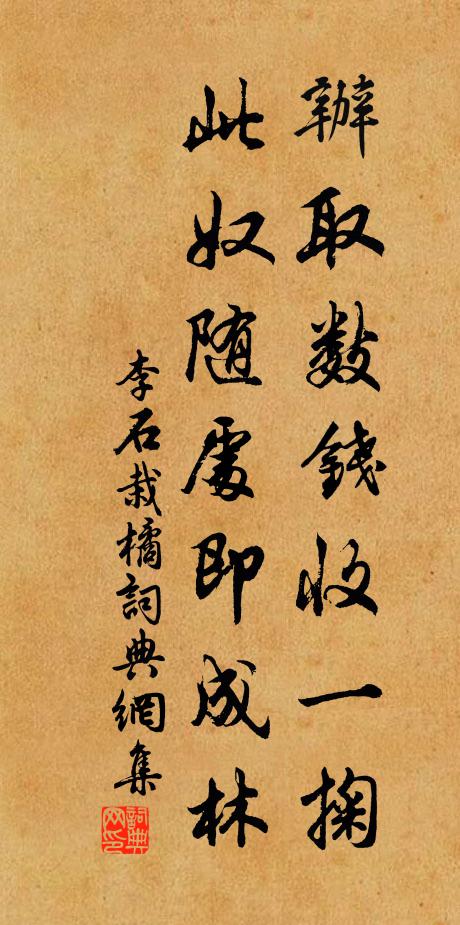 辦取数錢收一掬
此奴随處即成林
李石栽橘詞典網集
詞典网印